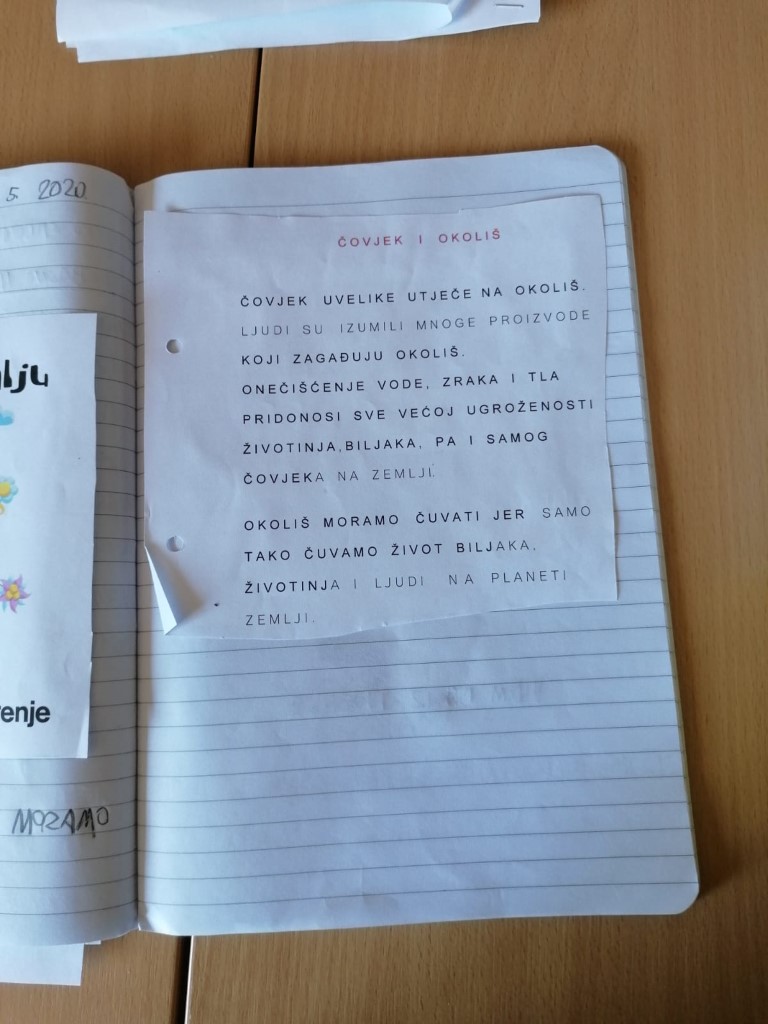 5. 2020.
ČOVJEK I OKOLIŠ
ČOVJEK UVELIKE UTJEČE NA OKOLIŠ.
LJUDI SU IZUMILI MNOGE PROIZVODE
KOJI ZAGAĐUJU OKOLIŠ.
ONEČIŠĆENJE VODE, ZRAKA I TLA
PRIDONOSI SVE VEĆOJ UGROŽENOSTI
ŽIVOTINJA,BILJAKA, PA I SAMOG
ČOVJEKA NA ZEMLJI.
OKOLIŠ MORAMO ČUVATI JER SAMO
TAKO ČUVAMO ŽIVOT BILJAKA,
ŽIVOTINJA I LJUDI NA PLANETI
ZEMLJI.
MORAMO